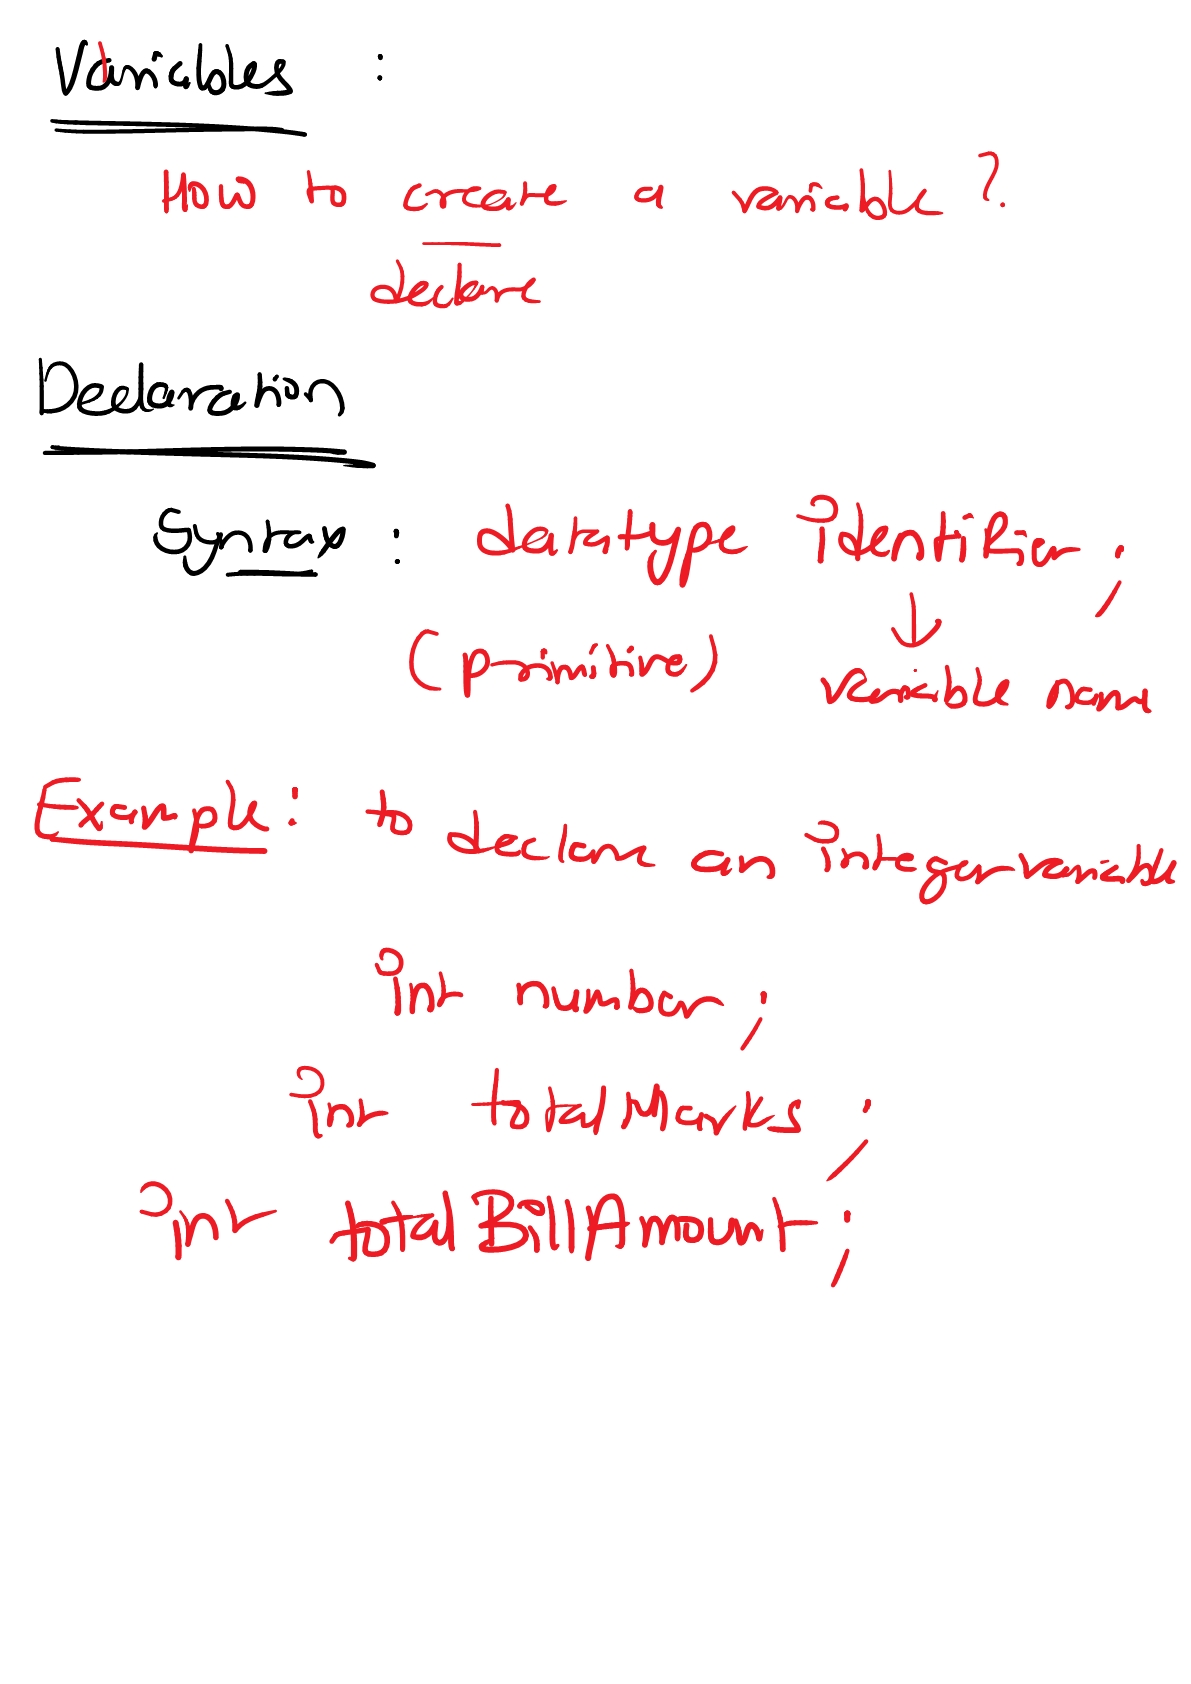 Variables :
How to create a variable ?
declare
Declaration
Syntax : datatype identifier ;
(primitive) variable name
Example : to declare an integer variable
int number ;
int totalMarks ;
int totalBillAmount ;